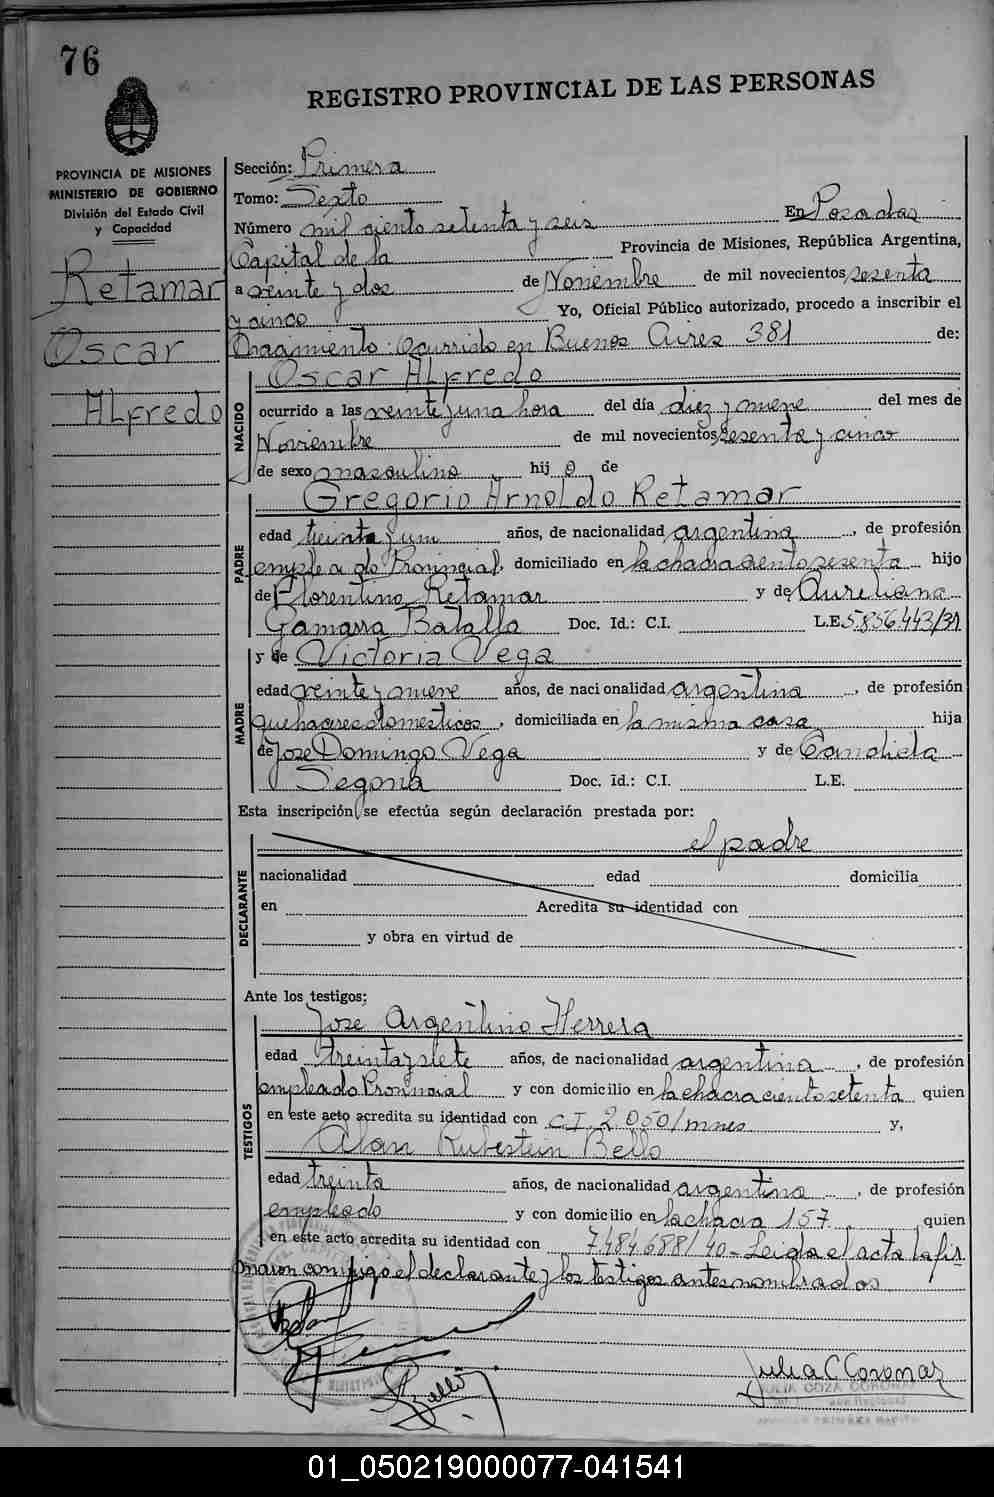 76
REGISTRO PROVINCIAL DE LAS PERSONAS
PROVINCIA DE MISIONES
MINISTERIO DE GOBIERNO
División del Estado Civil
y Capacidad
Retamar
Oscar
ALfredo
Sección: Primera
Tomo: Sexto
Número mil ciento setenta y seis En Posadas
Capital de la Provincia de Misiones, República Argentina,
a veinte y dos de Noviembre de mil novecientos sesenta
y cinco Yo, Oficial Público autorizado, procedo a inscribir el
Nacimiento: Ocurrido en Buenos Aires 381 de:
NACIDO
Oscar ALfredo
ocurrido a las veinte y una hora del día diez y nueve del mes de
Noviembre de mil novecientos sesenta y cinco
de sexo masculino hij o de
PADRE
Gregorio Arnoldo Retamar
edad treinta y un años, de nacionalidad argentina, de profesión
empleado Provincial, domiciliado en la chacra ciento sesenta hijo
de Florentino Retamar y de Aureliana
Gamarra Batalla Doc. Id.: C.I. L.E. 5.856.443/31
MADRE
y de Victoria Vega
edad veinte y nueve años, de nacionalidad argentina, de profesión
quehaceres domesticos, domiciliada en la misma casa hija
de Jose Domingo Vega y de Candida
Segona Doc. Id.: C.I. L.E.
Esta inscripción se efectúa según declaración prestada por:
el padre
DECLARANTE
nacionalidad edad domicilia
en Acredita su identidad con
y obra en virtud de
Ante los testigos:
TESTIGOS
Jose Argentino Herrera
edad treinta y siete años, de nacionalidad argentina, de profesión
empleado Provincial y con domicilio en la chacra ciento setenta quien
en este acto acredita su identidad con C.I. 2.050/mnes y,
Alan Rubestein Bello
edad treinta años, de nacionalidad argentina, de profesión
empleado y con domicilio en la chacra 157 quien
en este acto acredita su identidad con 7.484.688/40 - Leida el acta la fir
maron conmigo el declarante y los testigos antes nombrados
Bello
Julia C Coronaz
01_050219000077-041541